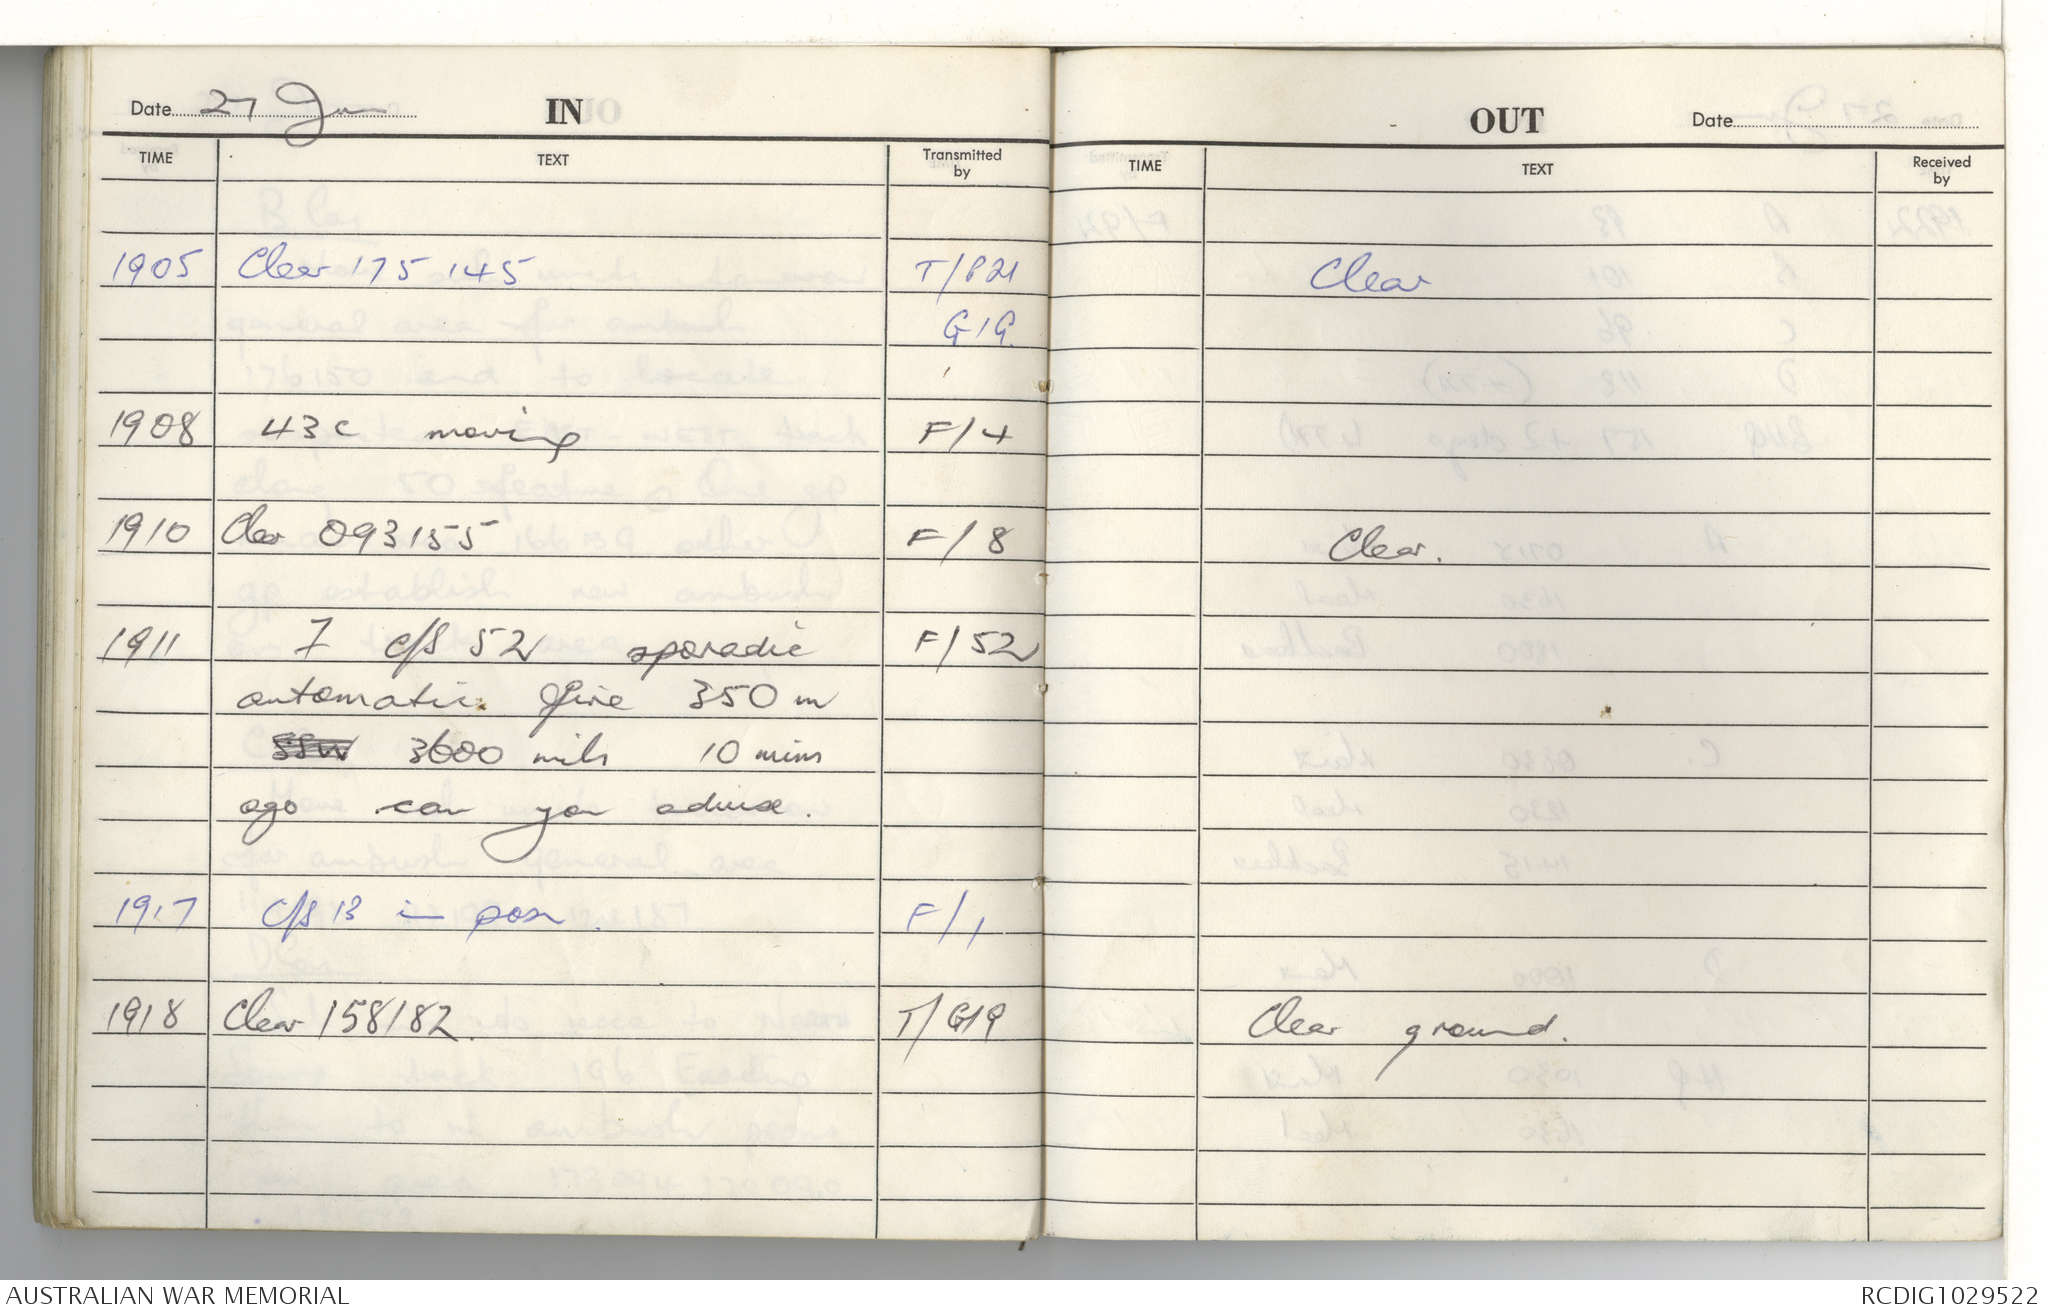 Date 27 Jun IN
TIME TEXT Transmitted by
1905 Clear 175 145 T/P21
G19
1908 43C moving F/4
1910 Clear 093155 F/8
1911 7 c/s 52 sporadic F/52
automatic fire 350 m
SSW 3600 mils 10 mins
ago can you advise.
1917 C/S 13 in posn. F/1
1918 Clear 158182. T/G19
OUT Date
TIME TEXT Received by
Clear
Clear.
Clear ground.
AUSTRALIAN WAR MEMORIAL
RCDIG1029522